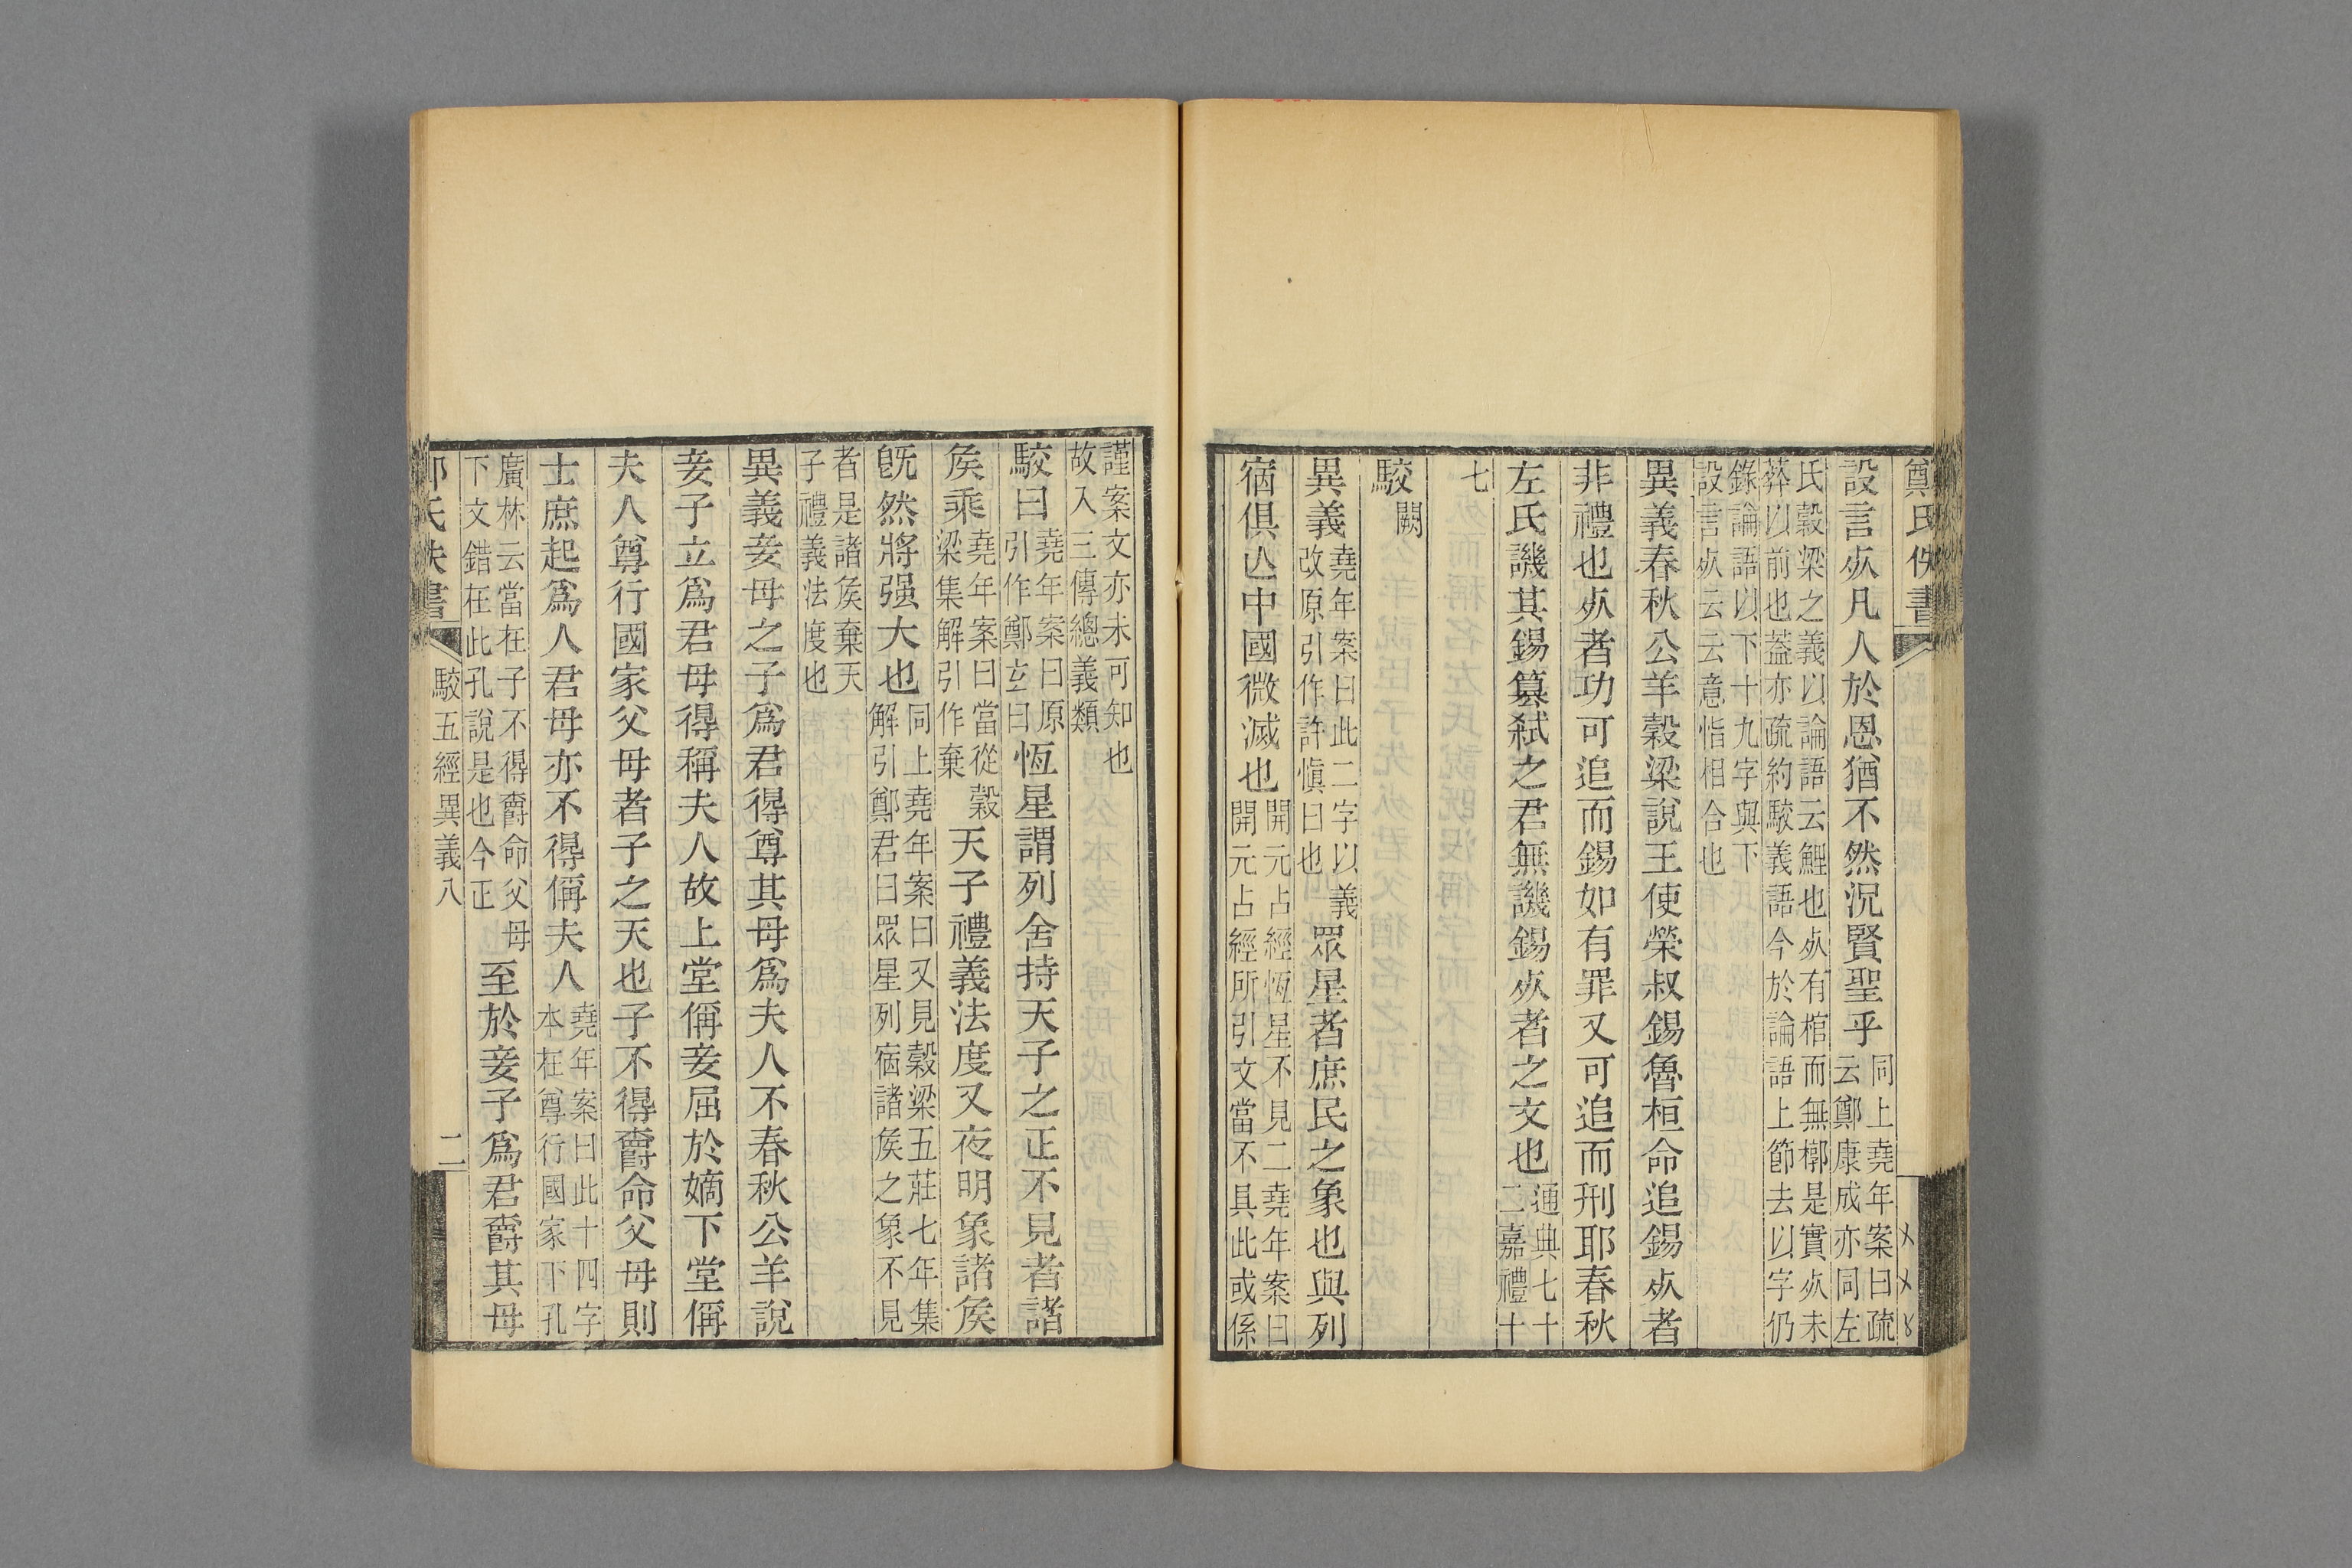 鄭氏佚書
設言㱙凡人於恩猶不然況賢聖乎同上堯年案曰疏云鄭康成亦同左
氏穀梁之義以論語云鯉也㱙有棺而無槨是實㱙未葬以前也蓋亦疏約駮義語今於論語上節去以字仍
錄論語以下十九字與下設言㱙云云意恉相合也
異義春秋公羊穀梁說王使榮叔錫魯桓命追錫㱙者
非禮也㱙者功可追而錫如有罪又可追而刑耶春秋
左氏譏其錫篡弒之君無譏錫㱙者之文也通典七十二嘉禮十
七
駮闕
異義堯年案曰此二字以義改原引作許愼曰也眾星者庶民之象也與列
宿俱亾中國微滅也開元占經恆星不見二堯年案曰開元占經所引文當不具此或係
謹案文亦未可知也故入三傳總義類
駮曰堯年案曰原引作鄭玄曰恆星謂列舍持天子之正不見者諸
矦乘堯年案曰當從穀梁集解引作棄天子禮義法度又夜明象諸矦
旣然將强大也同上堯年案曰又見穀梁五莊七年集解引鄭君曰眾星列宿諸矦之象不見
者是諸矦棄天子禮義法度也
異義妾母之子爲君得尊其母爲夫人不春秋公羊說
妾子立爲君母得稱夫人故上堂偁妾屈於嫡下堂偁
夫人尊行國家父母者子之天也子不得爵命父母則
士庶起爲人君母亦不得偁夫人堯年案曰此十四字本在尊行國家下孔
廣林云當在子不得爵命父母下文錯在此孔說是也今正至於妾子爲君爵其母
駮五經異義八
二